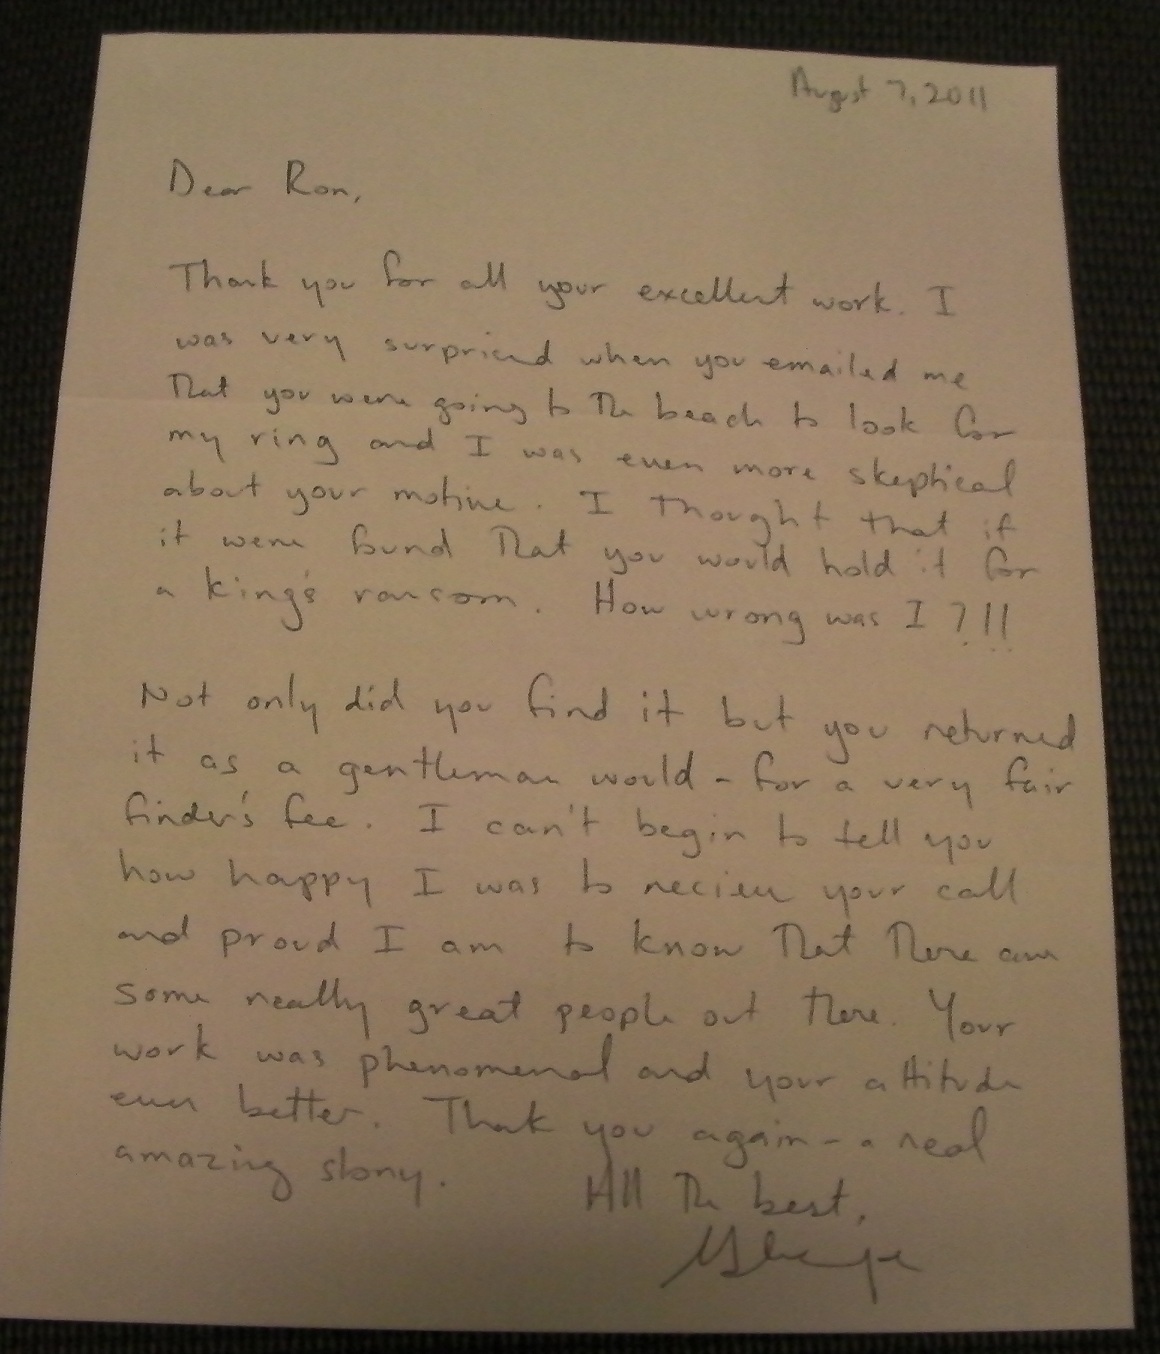 August 7, 2011
Dear Ron,
Thank you for all your excellent work. I
was very surprised when you emailed me
that you were going to the beach to look for
my ring and I was even more skeptical
about your motive. I thought that if
it were found that you would hold it for
a king's ransom. How wrong was I?!!
Not only did you find it but you returned
it as a gentleman would - for a very fair
finder's fee. I can't begin to tell you
how happy I was to recieve your call
and proud I am to know that there are
some really great people out there. Your
work was phenomenal and your attitude
even better. Thank you again - a real
amazing story.
All the best,